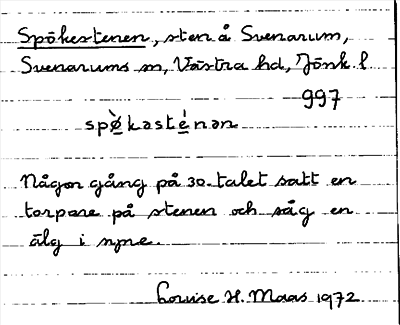 Spökestenen, sten å Svenarum,
Svenarums sn, Västra hd, Jönk. l
997
spø̀kasté̱nan
Någon gång på 30-talet satt en
torpare på stenen och såg en
älg i syne.
Louise H. Maas 1972